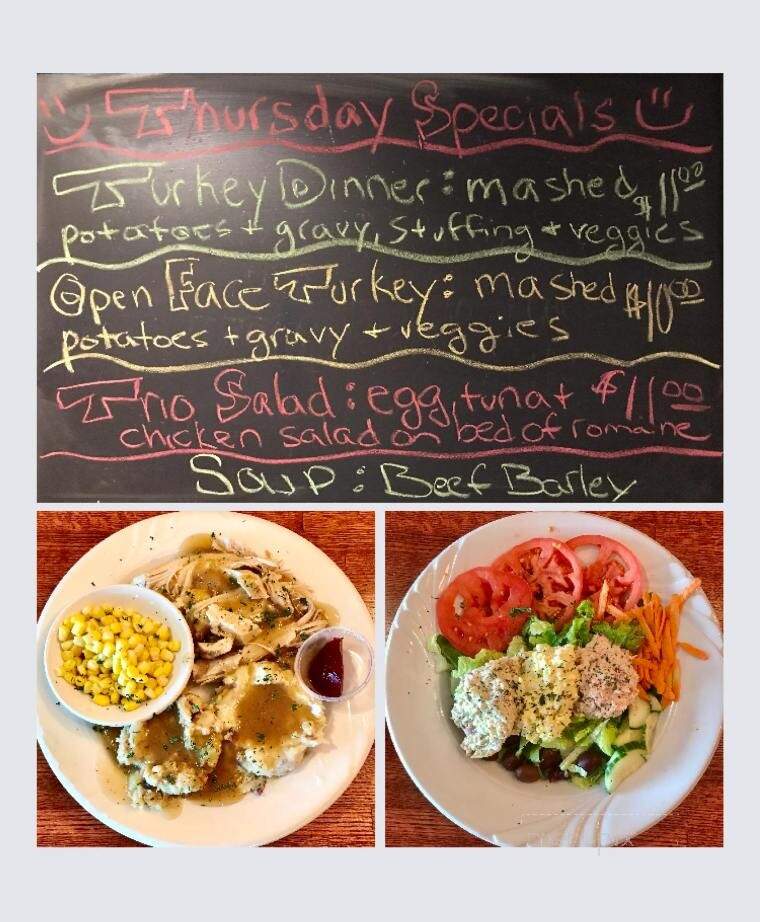 Thursday Specials
Turkey Dinner: mashed $11.00
potatoes + gravy, stuffing + veggies
Open Face Turkey: mashed $10.00
potatoes + gravy + veggies
Trio Salad: egg, tuna + $11.00
chicken salad on bed of romaine
Soup: Beef Barley